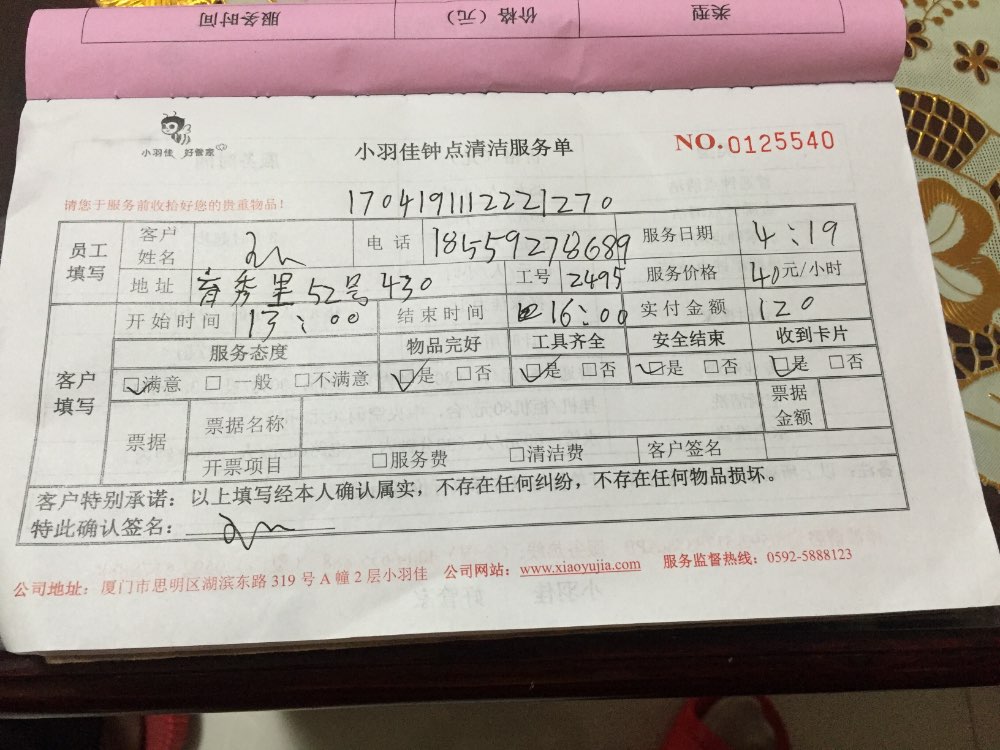 类型 价格（元） 服务时间
小羽佳 好管家
小羽佳钟点清洁服务单
NO.0125540
请您于服务前收拾好您的贵重物品！
1704191112221270
员工填写 客户姓名 电话 18559278689 服务日期 4:19
地址 育秀里52号430 工号 2495 服务价格 40元/小时
开始时间 13:00 结束时间 16:00 实付金额 120
客户填写 服务态度 物品完好 工具齐全 安全结束 收到卡片
☑满意 □一般 □不满意 ☑是 □否 ☑是 □否 ☑是 □否 ☑是 □否
票据 票据名称 票据金额
开票项目 □服务费 □清洁费 客户签名
客户特别承诺：以上填写经本人确认属实，不存在任何纠纷，不存在任何物品损坏。
特此确认签名：
公司地址：厦门市思明区湖滨东路319号A幢2层小羽佳 公司网站：www.xiaoyujia.com 服务监督热线：0592-5888123